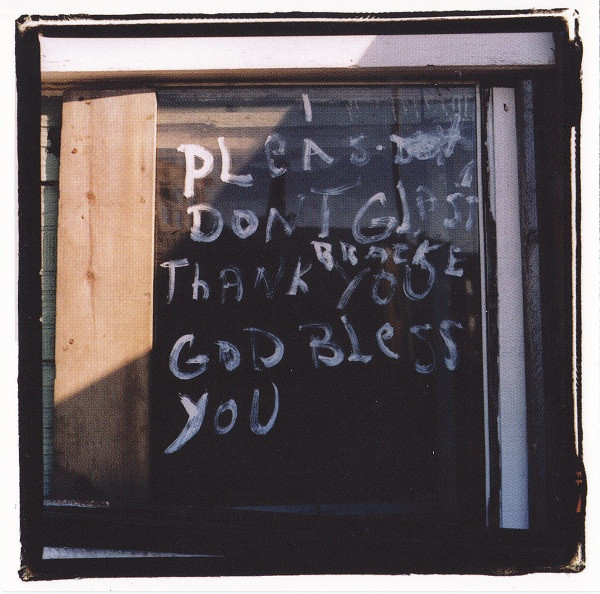 I
PLEAS
DON'T GLAST
BRACKE
THANK YOU
GOD BLESS
YOU